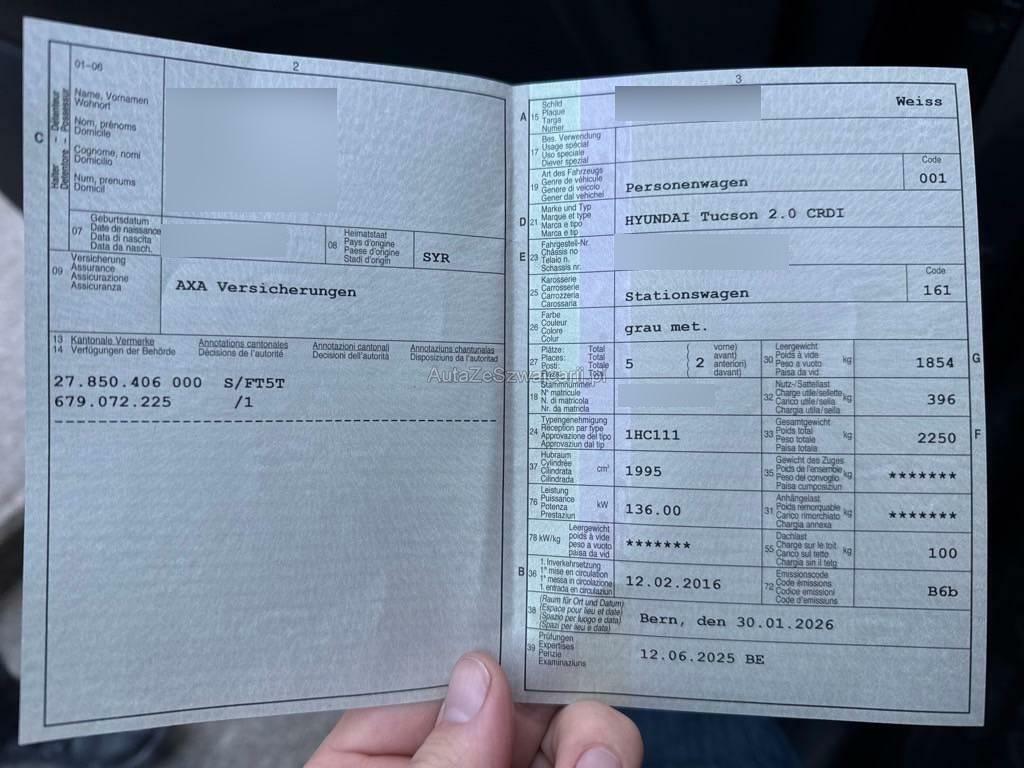 2
01-06
C
Halter - Détenteur
Detentore - Possessur
Name, Vornamen
Wohnort
Nom, prénoms
Domicile
Cognome, nomi
Domicilio
Num, prenums
Domicil
07
Geburtsdatum
Date de naissance
Data di nascita
Data da nasch.
08
Heimatstaat
Pays d'origine
Paese d'origine
Stadi d'origin
SYR
09
Versicherung
Assurance
Assicurazione
Assicuranza
AXA Versicherungen
13 Kantonale Vermerke
14 Verfügungen der Behörde
Annotations cantonales
Décisions de l'autorité
Annotazioni cantonali
Decisioni dell'autorità
Annotaziuns chantunalas
Disposiziuns da l'autoritad
27.850.406 000 S/FT5T
679.072.225 /1
AutaZeSzwajcarii.pl
3
A 15
Schild
Plaque
Targa
Numer
Weiss
17
Bes. Verwendung
Usage spécial
Uso speciale
Diever spezial
19
Art des Fahrzeugs
Genre de véhicule
Genere di veicolo
Gener dal vehichel
Personenwagen
Code
001
D 21
Marke und Typ
Marque et type
Marca e tipo
Marca e tip
HYUNDAI Tucson 2.0 CRDI
E 23
Fahrgestell-Nr.
Châssis no
Telaio n.
Schassis nr.
25
Karosserie
Carrosserie
Carrozzeria
Carossaria
Stationswagen
Code
161
26
Farbe
Couleur
Colore
Colur
grau met.
27
Plätze: Total
Places: Total
Posti: Totale
Total
5
( 2
vorne)
avant)
anteriori)
davant)
30
Leergewicht
Poids à vide
Peso a vuoto
Paisa da vid
kg
1854
G
18
Stammnummer
N° matricule
N. di matricola
Nr. da matricla
32
Nutz-/Sattellast
Charge utile/sellette
Carico utile/sella
Chargia utila/sella
kg
396
24
Typengenehmigung
Réception par type
Approvazione del tipo
Approvaziun dal tip
1HC111
33
Gesamtgewicht
Poids total
Peso totale
Paisa totala
kg
2250
F
37
Hubraum
Cylindrée
Cilindrata
Cilindrada
cm³
1995
35
Gewicht des Zuges
Poids de l'ensemble
Peso del convoglio
Paisa cumposiziun
kg
*******
76
Leistung
Puissance
Potenza
Prestaziun
kW
136.00
31
Anhängelast
Poids remorquable
Carico rimorchiato
Chargia annexa
kg
*******
78 kW/kg
Leergewicht
poids à vide
peso a vuoto
paisa da vid
*******
55
Dachlast
Charge sur le toit
Carico sul tetto
Chargia sin il tetg
kg
100
B 36
1. Inverkehrsetzung
1re mise en circulation
1a messa in circolazione
1. entrada en circulaziun
12.02.2016
72
Emissionscode
Code émissions
Codice emissioni
Code d'emissiuns
B6b
38
(Raum für Ort und Datum)
(Espace pour lieu et date)
(Spazio per luogo e data)
(Spazi per lieu e data)
Bern, den 30.01.2026
39
Prüfungen
Expertises
Perizie
Examinaziuns
12.06.2025 BE